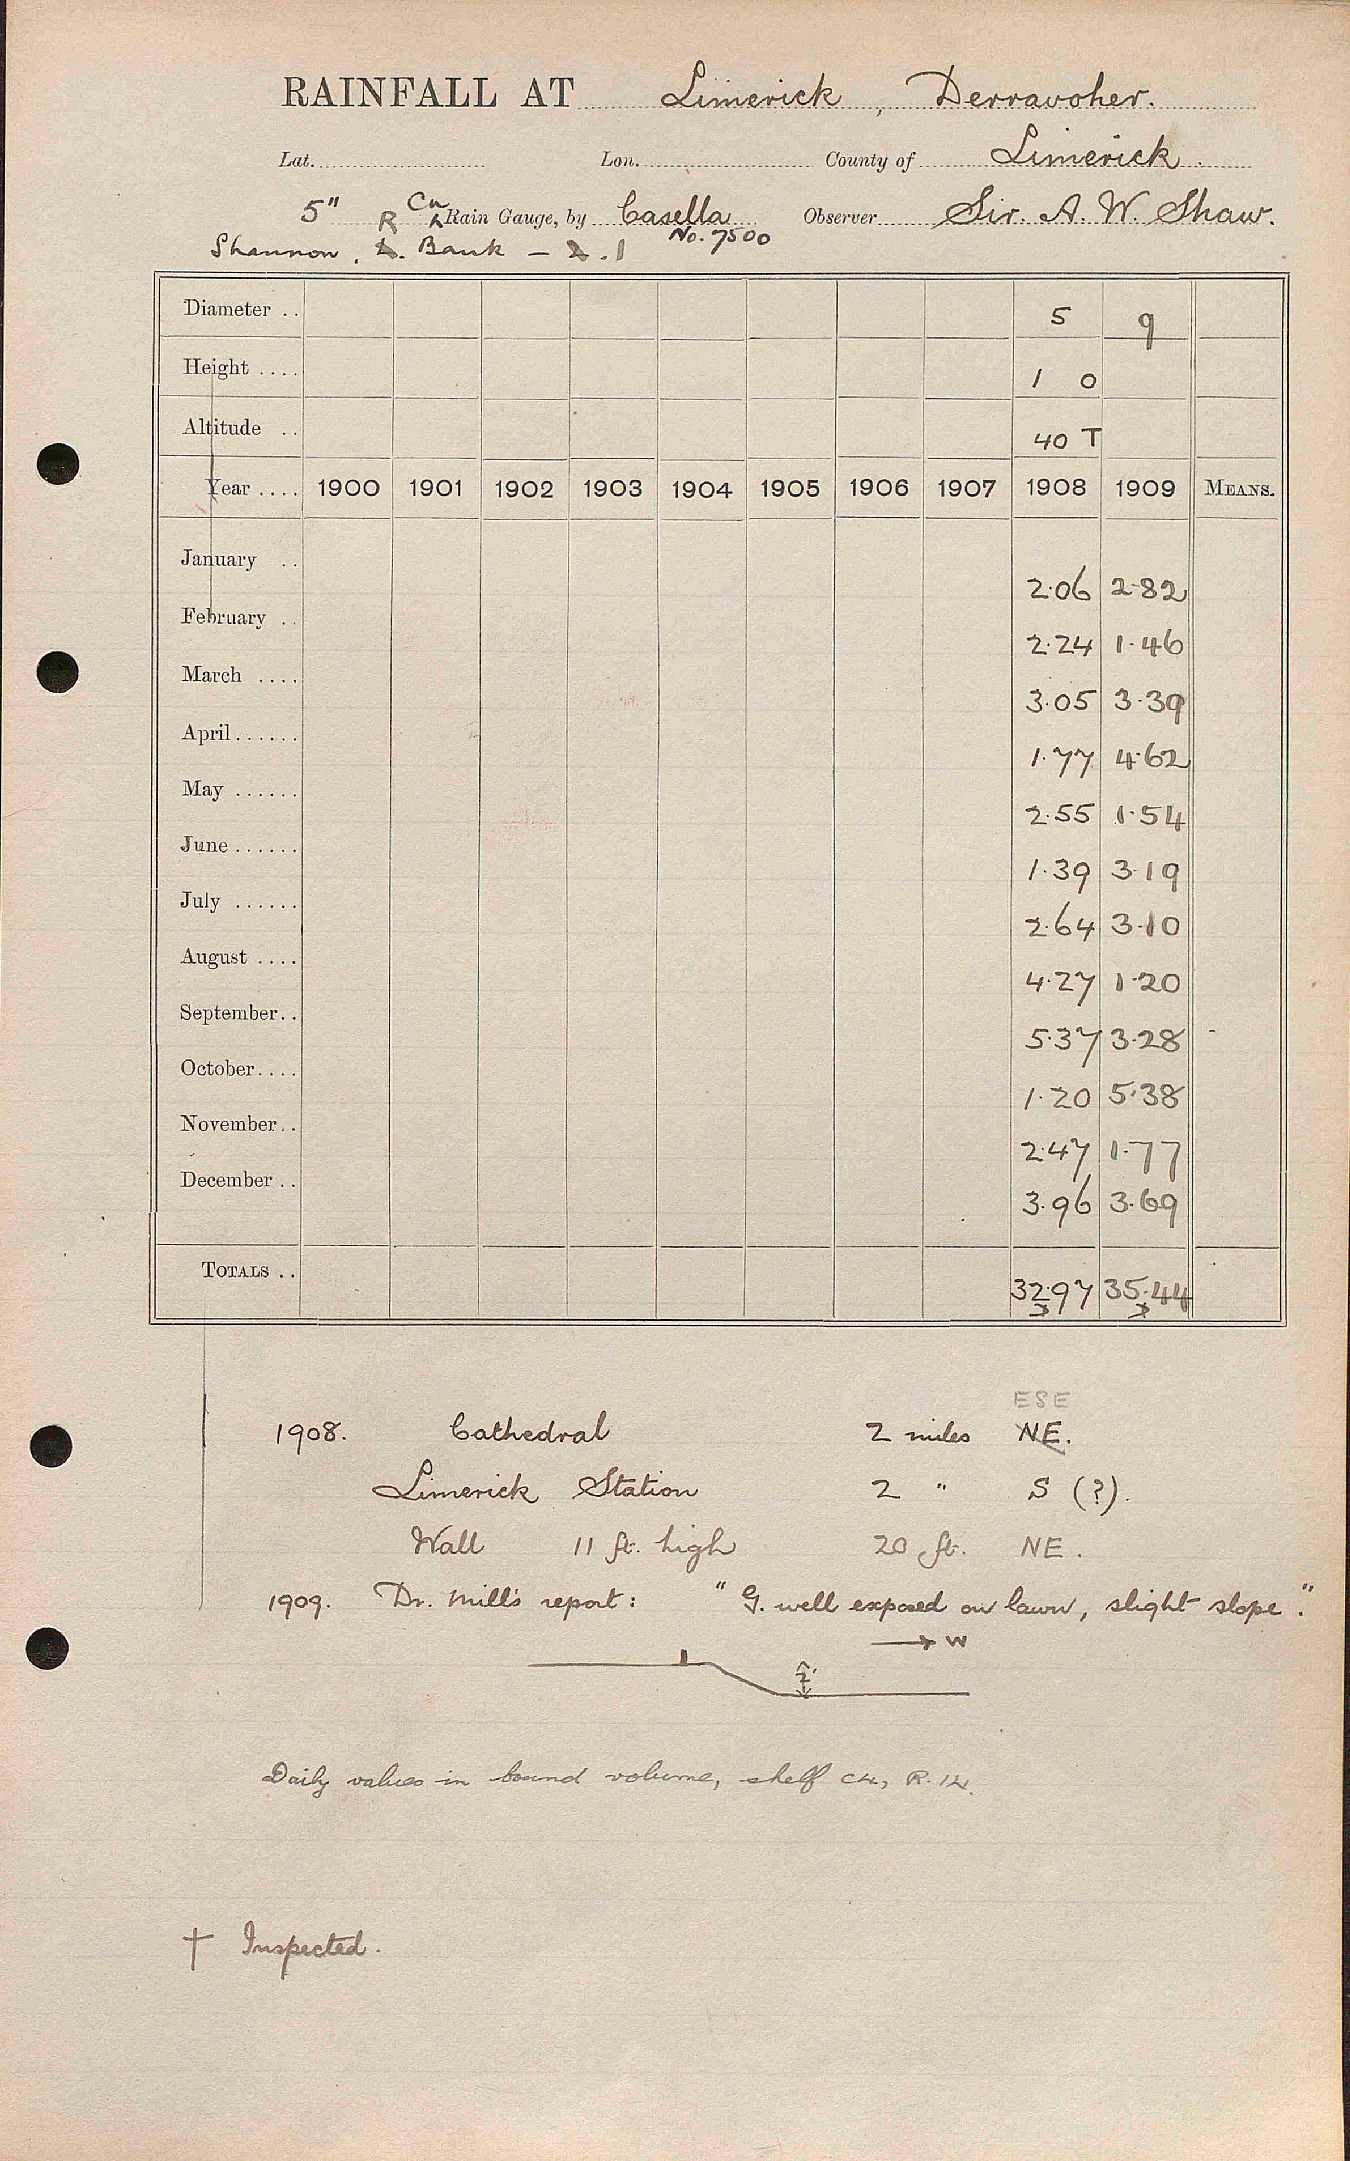 RAINFALL AT Limerick, Derravoher.
Lat. Lon. County of Limerick.
5" R Cu Rain Gauge, by Casella Observer Sir. A. W. Shaw.
No. 7500
Shannon, R. Bank – 2.1
Diameter .. 5 9
Height .... 1 0
Altitude .. 40 T
Year .... 1900 1901 1902 1903 1904 1905 1906 1907 1908 1909 MEANS.
January .. 2.06 2.82
February .. 2.24 1.46
March .... 3.05 3.39
April...... 1.77 4.62
May ...... 2.55 1.54
June ...... 1.39 3.19
July ...... 2.64 3.10
August .... 4.27 1.20
September.. 5.37 3.28
October.... 1.20 5.38
November.. 2.47 1.77
December .. 3.96 3.69
TOTALS .. 32.97 35.44
ESE
1908. Cathedral 2 miles NE.
Limerick Station 2 " S (?).
Wall 11 ft. high 20 ft. NE.
1909. Dr. Mill's report: "G. well exposed on lawn, slight slope."
→ W
2'
Daily values in bound volume, shelf C4, R.14.
† Inspected.